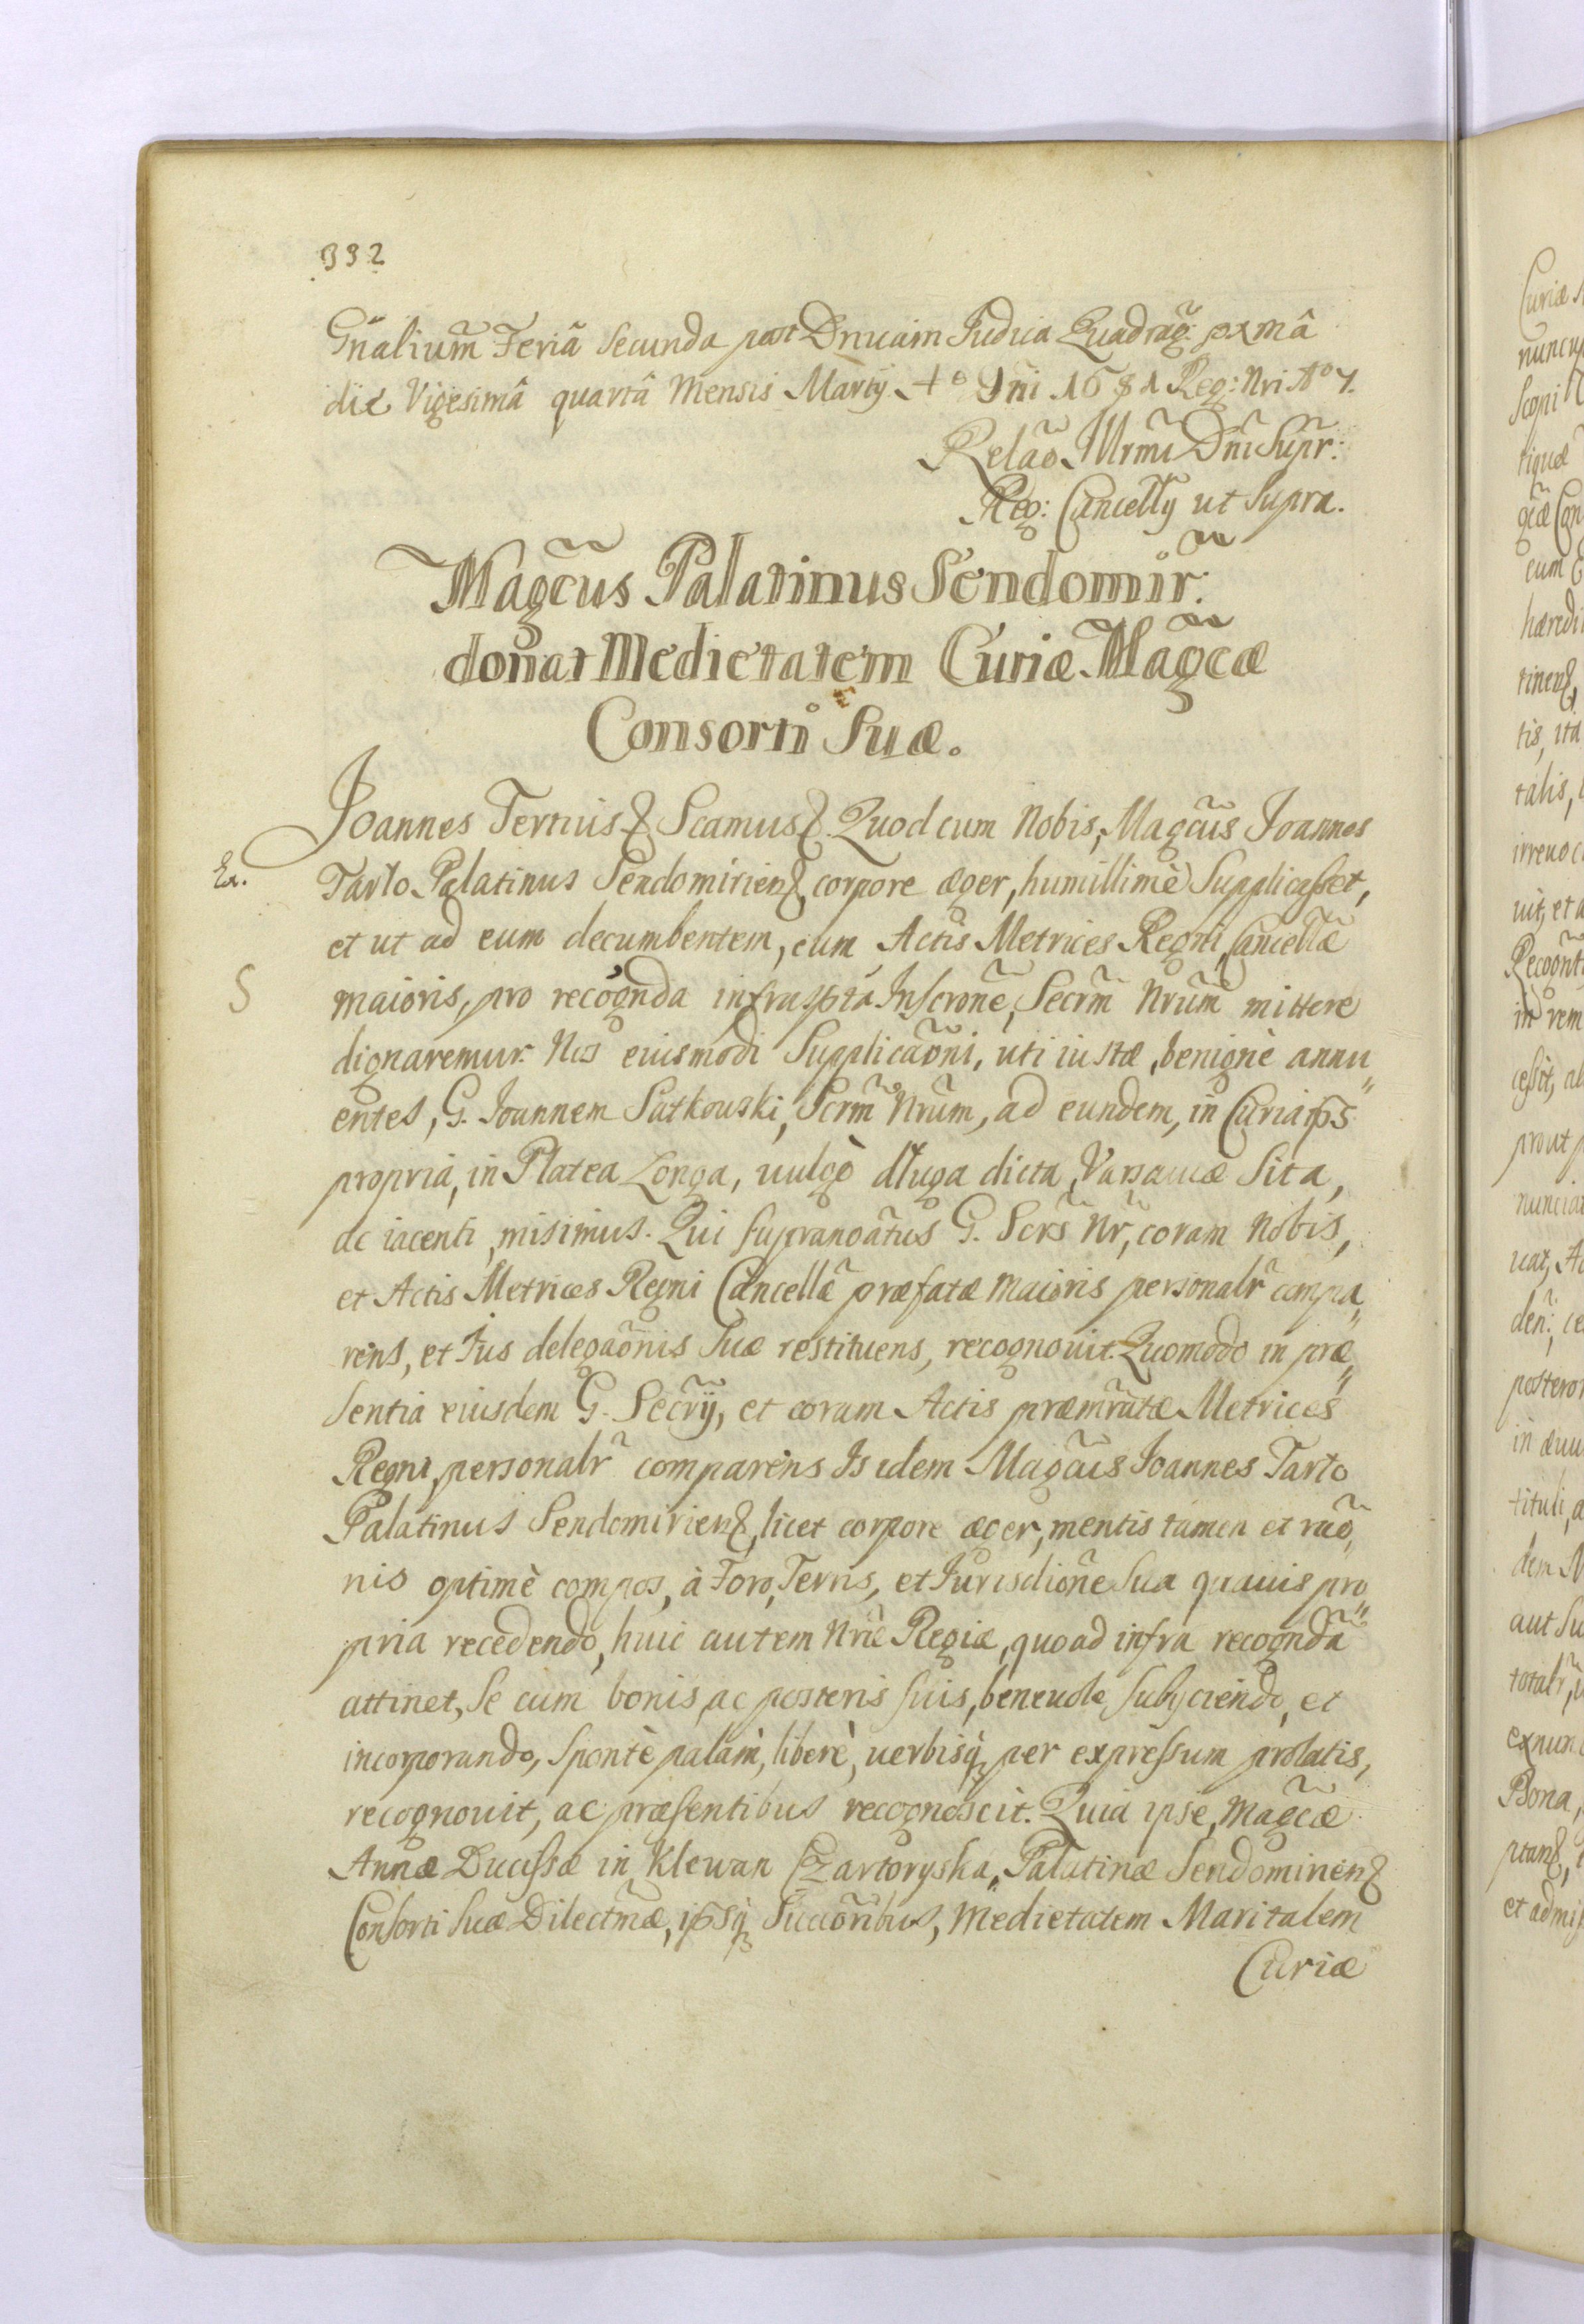 332
Gnãlium Feriã Secunda post Dnicam Judica Quadrag: pxmâ
die Vigesimâ quartâ Mensis Martij Aº Dni 1681 Reg: Nri Aº 7.
Relão Illrmi Dni Supr:
Reg: Cancellrij ut Supra.
Magcus Palatinus Sendomir:
donat Medietatem Curiæ Magcæ
Consorti Suæ.
Joannes Tertius & Scamus &. Quod cum Nobis, Magcus Joannes
Tarlo Palatinus Sendomiriens, corpore æger, humillimè Supplicasset,
et ut ad eum decumbentem, cum Actis Metrices Regni, Cancellæ
S maioris, pro recognda infraspta Inscrone, Secrm Nrum mittere
dignaremur. Nos eiusmodi Supplicaõni, uti iustæ, benignè annu„
entes, G. Joannem Sutkowski, Scrm Nrum, ad eundem, in Curia ips
propria, in Platea Longa, uulgò dluga dicta, Varsauiæ Sita,
ac iacenti, misimus. Qui supranoatus G. Scrs Nr, coram Nobis,
et Actis Metrices Regni Cancellæ præfatæ maioris personalr compa„
rens, et Jus delegaõnis Suæ restituens, recognouit. Quomodo in præ„
sentia eiusdem G. Secrij, et coram Actis præmratæ Metrices
Regni, personalr comparens Is idem Magcus Joannes Tarło
Palatinus Sendomiriens, licet corpore æger, mentis tamen et raõ„
nis optimè compos, à Foro, Terris, et Jurisdione Sua quauis pro„
pria recedendo, huic autem Nræ Regiæ, quoad infra recognda
attinet, Se cum bonis, ac posteris suis, beneuole, subijciendo, et
incorporando, Sponte palam, liberè, uerbisq; per expressum prolatis,
recognouit, ac præsentibus recognoscit. Quia ipse, Magcæ
Annæ Ducissæ in Klewan Czartoryska, Palatinæ Sendomiriens
Consorti suæ Dilectmæ, ipsq; Succoribus, Medietatem Maritalem
Curiæ